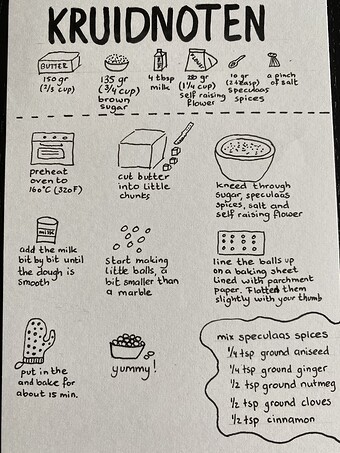 KRUIDNOTEN
BUTTER
150 gr
(2/3 cup)
135 gr
(3/4 cup)
brown
sugar
4 tbsp
milk
gr
(1 1/4 cup)
self raising
flower
10 gr
speculaas
spices
a pinch
of salt
preheat
oven to
160°C (320F)
cut butter
into little
chunks
kneed through
sugar, speculaas
spices, salt and
self raising flower
milk
add the milk
bit by bit until
the dough is
smooth
start making
little balls, a
bit smaller than
a marble
line the balls up
on a baking sheet
lined with parchment
paper. Flatten them
slightly with your thumb
put in the
and bake for
about 15 min.
yummy!
mix speculaas spices
1/4 tsp ground aniseed
1/4 tsp ground ginger
1/2 tsp ground nutmeg
1/2 tsp ground cloves
1/2 tsp cinnamon